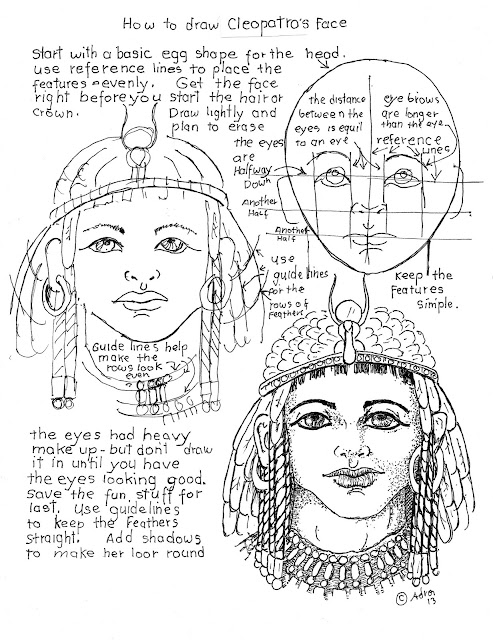 How to draw Cleopatra's Face
Start with a basic egg shape for the head.
use reference lines to place the
features evenly. Get the face
right before you start the hair or
crown. Draw lightly and
plan to erase
the distance
between the
eyes is equil
to an eye
eye brows
are longer
than the eye.
reference
lines
the eyes
are
Halfway
Down
Another
Half
Another
Half
use
guide lines
for the
rows of
feathers
Keep the
Features
Simple.
Guide lines help
make the
rows look
even
the eyes had heavy
make up - but don't draw
it in until you have
the eyes looking good.
Save the fun stuff for
last. Use guidelines
to keep the Feathers
straight. Add shadows
to make her loor round
© Adron
13